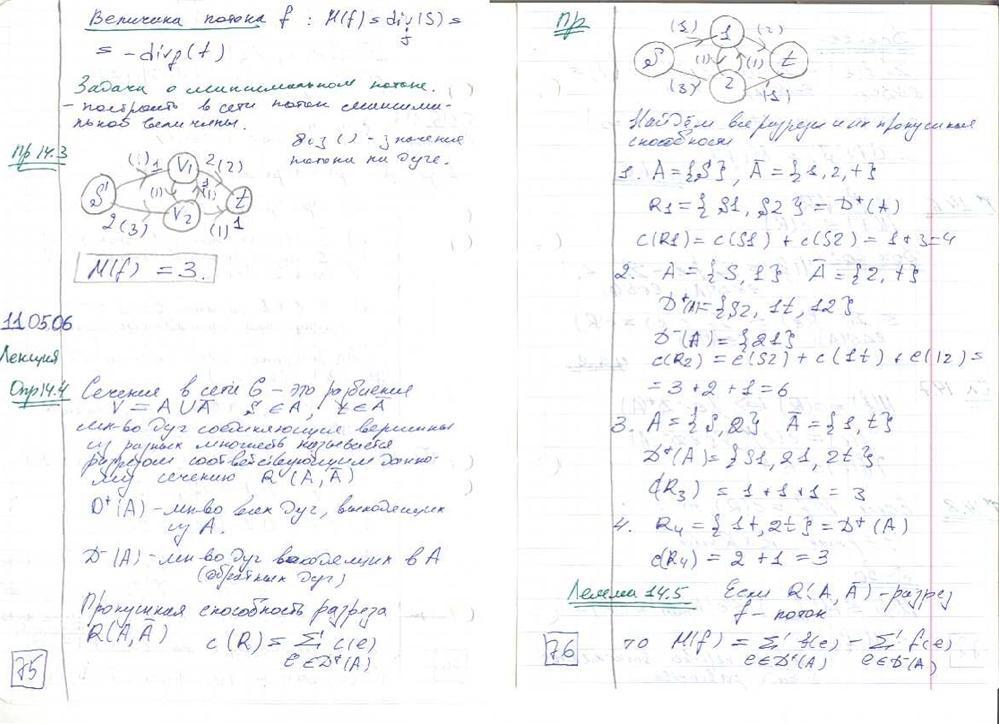 Величина потока f : M(f) = div(S) =
f
= -div f(t)
Задача о максимальном потоке.
- построить в сети поток максима-
льной величины.
Пр 14.3
без ( ) - значение
потока на дуге.
(1) 1 V1 2 (2)
S (1) 1 (1) t
2 (3) V2 (1) 1
M(f) = 3.
11.05.06
Лекция
Опр 14.4 Сечение в сети G - это разбиение
V = A ∪ Ā S ∈ A , t ∈ Ā
мн-во дуг соединяющих вершины
из разных множеств называется
разрезом соответствующим данно-
му сечению R (A, Ā)
D⁺(A) - мн-во всех дуг, выходящих
из A.
D⁻(A) - мн-во дуг входящих в A
(обратных дуг)
Пропускная способность разреза
R(A, Ā) c(R) = Σ c(e)
e ∈ D⁺(A)
75
Пр
(1) 1 (2)
S (1) (1) t
(3) 2 (1)
Найдём все разрезы и их пропускная
способности
1. A = {S}, Ā = {1, 2, t}
R1 = {S1, S2} = D⁺(A)
c(R1) = c(S1) + c(S2) = 1 + 3 = 4
2. A = {S, 1} Ā = {2, t}
D⁺(A) = {S2, 1t, 12}
D⁻(A) = {21}
c(R2) = c(S2) + c(1t) + c(12) =
= 3 + 2 + 1 = 6
3. A = {S, 2} Ā = {1, t}
D⁺(A) = {S1, 21, 2t}
c(R3) = 1 + 1 + 1 = 3
4. R4 = {1t, 2t} = D⁺(A)
c(R4) = 2 + 1 = 3
Лемма 14.5 Если R(A, Ā) - разрез
f - поток
76 то M(f) = Σ f(e) - Σ f(e)
e ∈ D⁺(A) e ∈ D⁻(A)